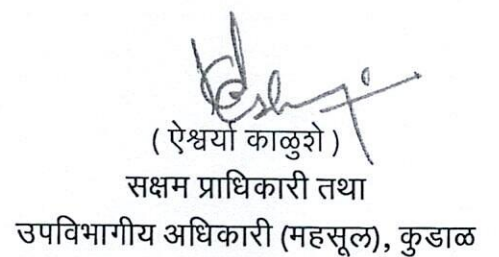 ( ऐश्वर्या काळुशे )
सक्षम प्राधिकारी तथा
उपविभागीय अधिकारी (महसूल), कुडाळ